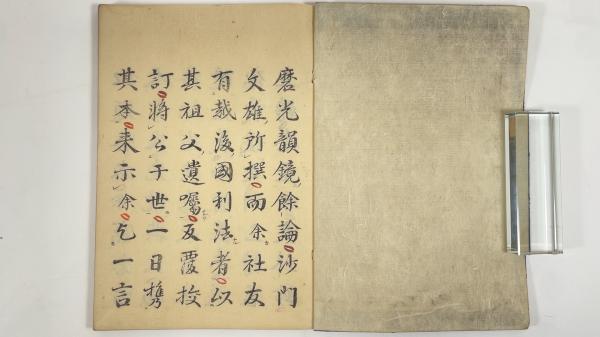 磨光韻鏡餘論沙門
文雄所撰而余社友
有越後國利法者以
其祖父遺囑反覆挍
訂將公于世一日携
其本来示余乞一言